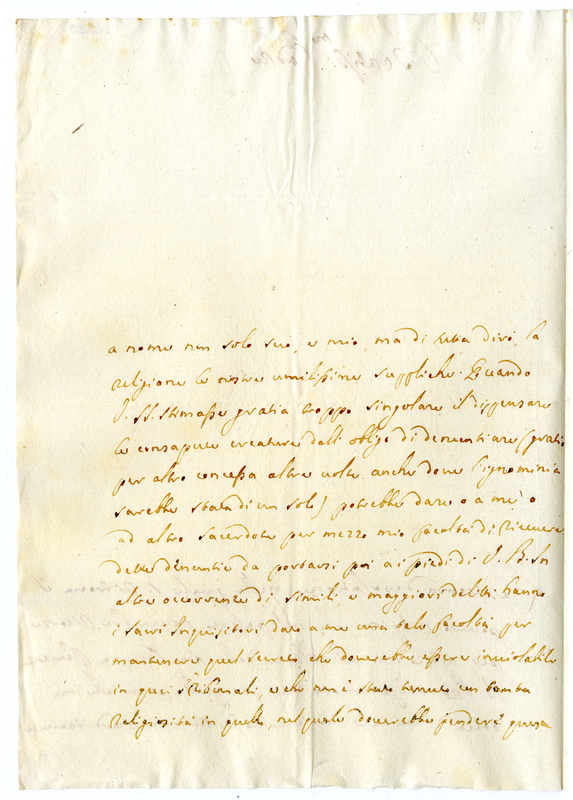 a nome non solo suo, e mio, ma di tutta dirò, la
religione le nostre umilissime suppliche. Quando
S. SS. stimasse gratia troppo singolare il dispensare
le consapute creature dall' obligo di denuntiare (gratia
per altro concessa altre volte anche dove l'ignominia
sarebbe stata di un solo) potrebbe dare o a me o
ad altro sacerdote per mezzo mio facoltà di ricevere
dette denuntie da portarsi poi a i piedi di S. B. In
altre occorrenze di simili, e maggiori delitti hanno
i sacri Inquisitori dato a me una tale facoltà per
mantenere quel secreto, che dovrebbe essere inviolabile
in quei Tribunali, e che non è stato tenuto con tanta
religiosità in quello, nel quale dovrebbe pendere questa